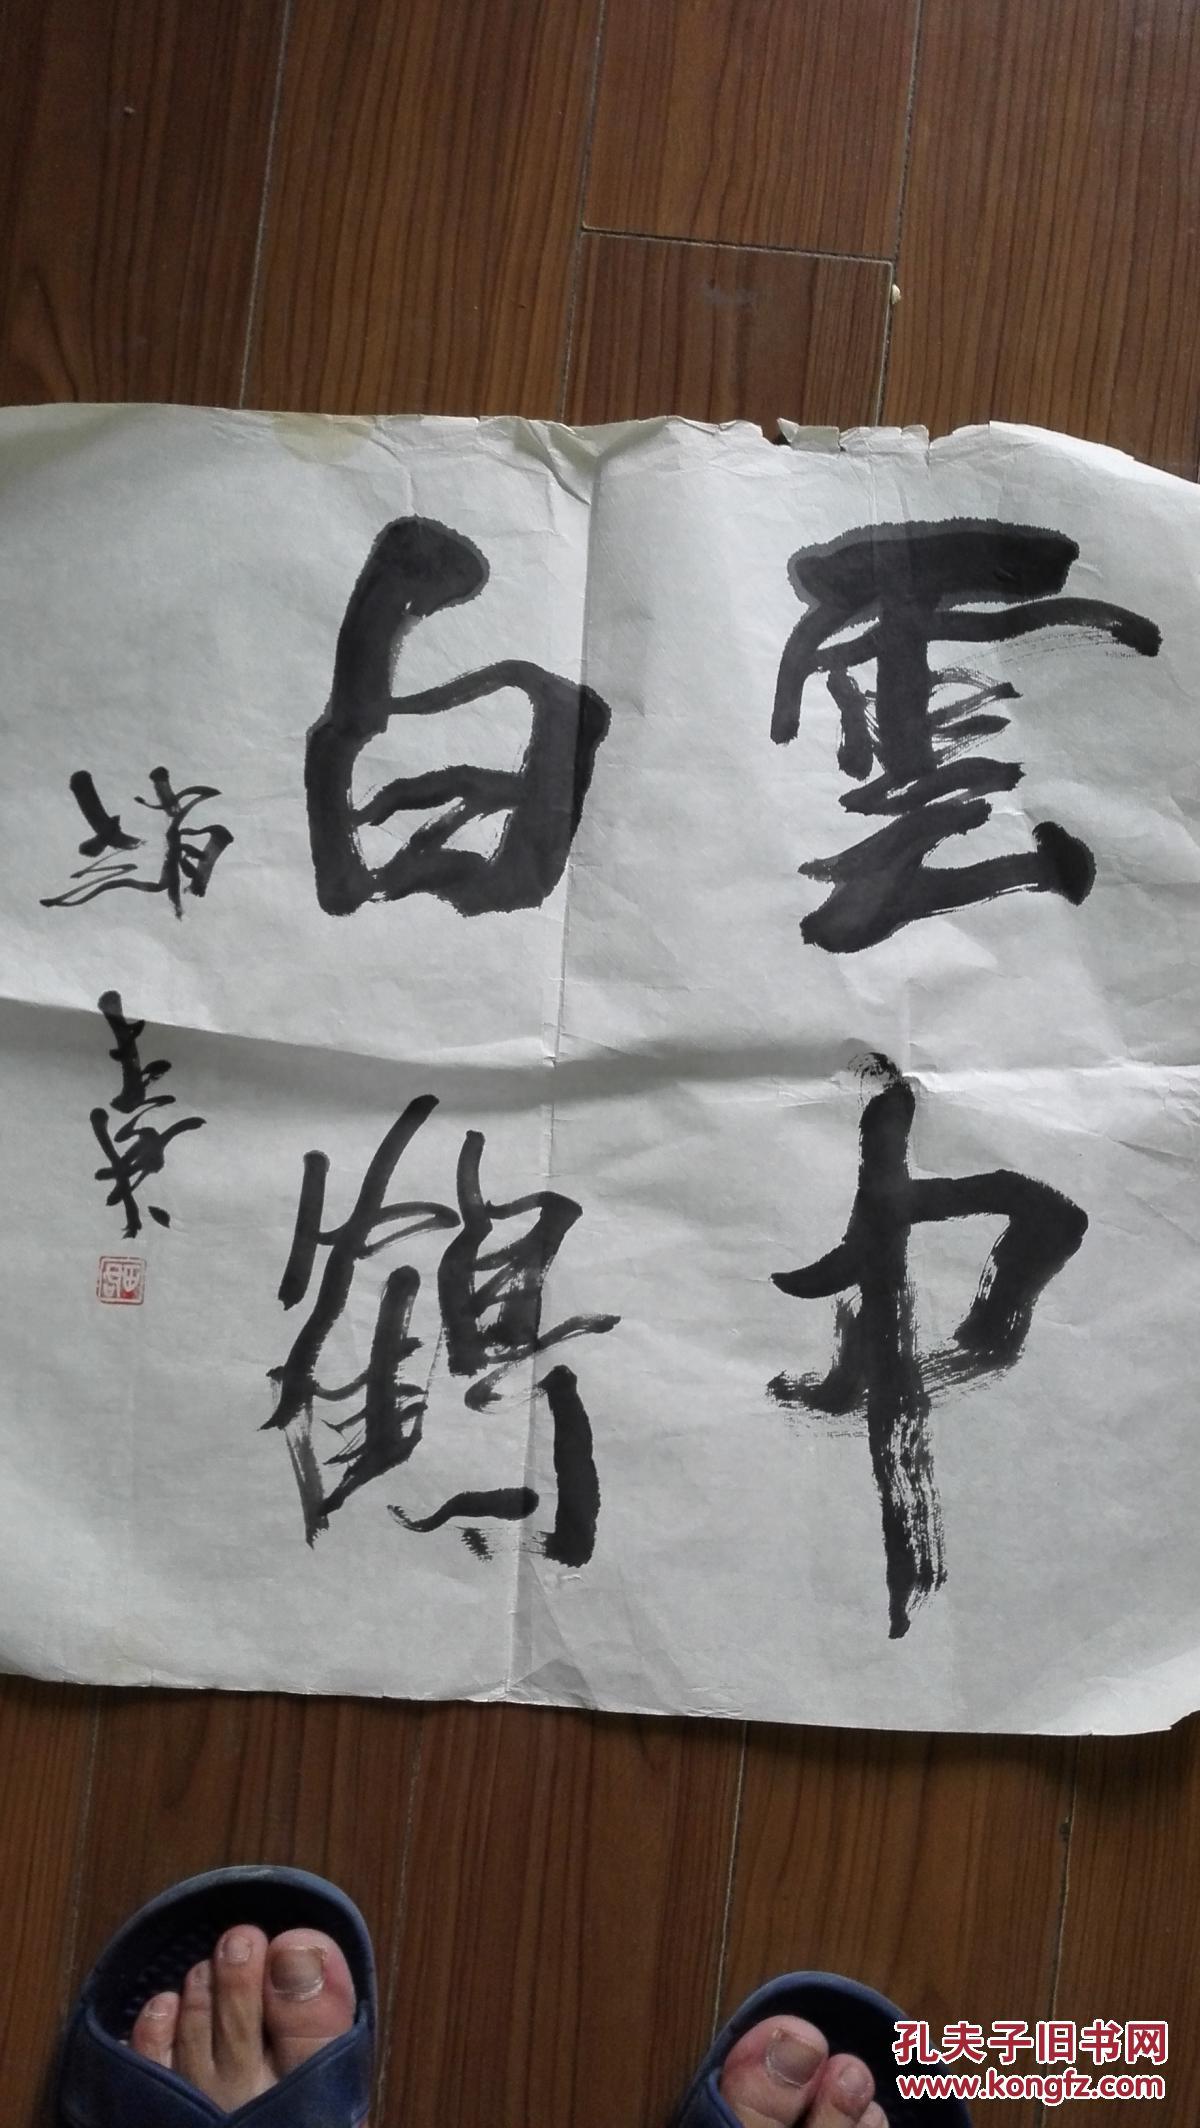 雲中
白鶴
趙
孔夫子旧书网
www.kongfz.com